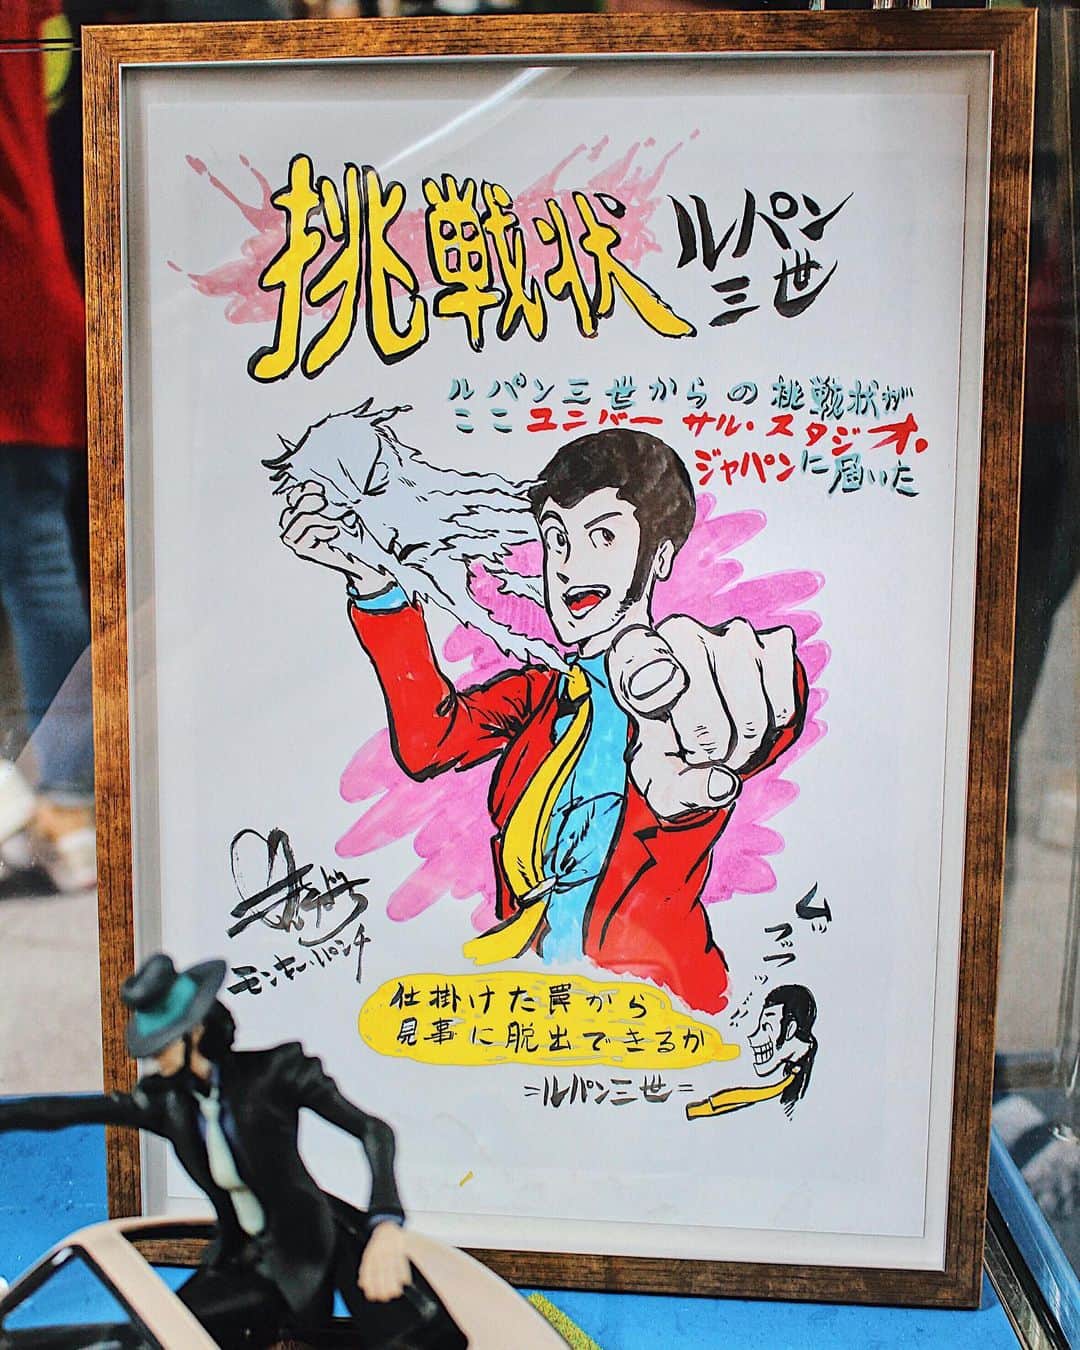 挑戦状
ルパン
三世
ルパン三世からの挑戦状が
ここユニバーサル・スタジオ・
ジャパンに届いた
モンキー・パンチ
仕掛けた罠から
見事に脱出できるか
=ルパン三世=